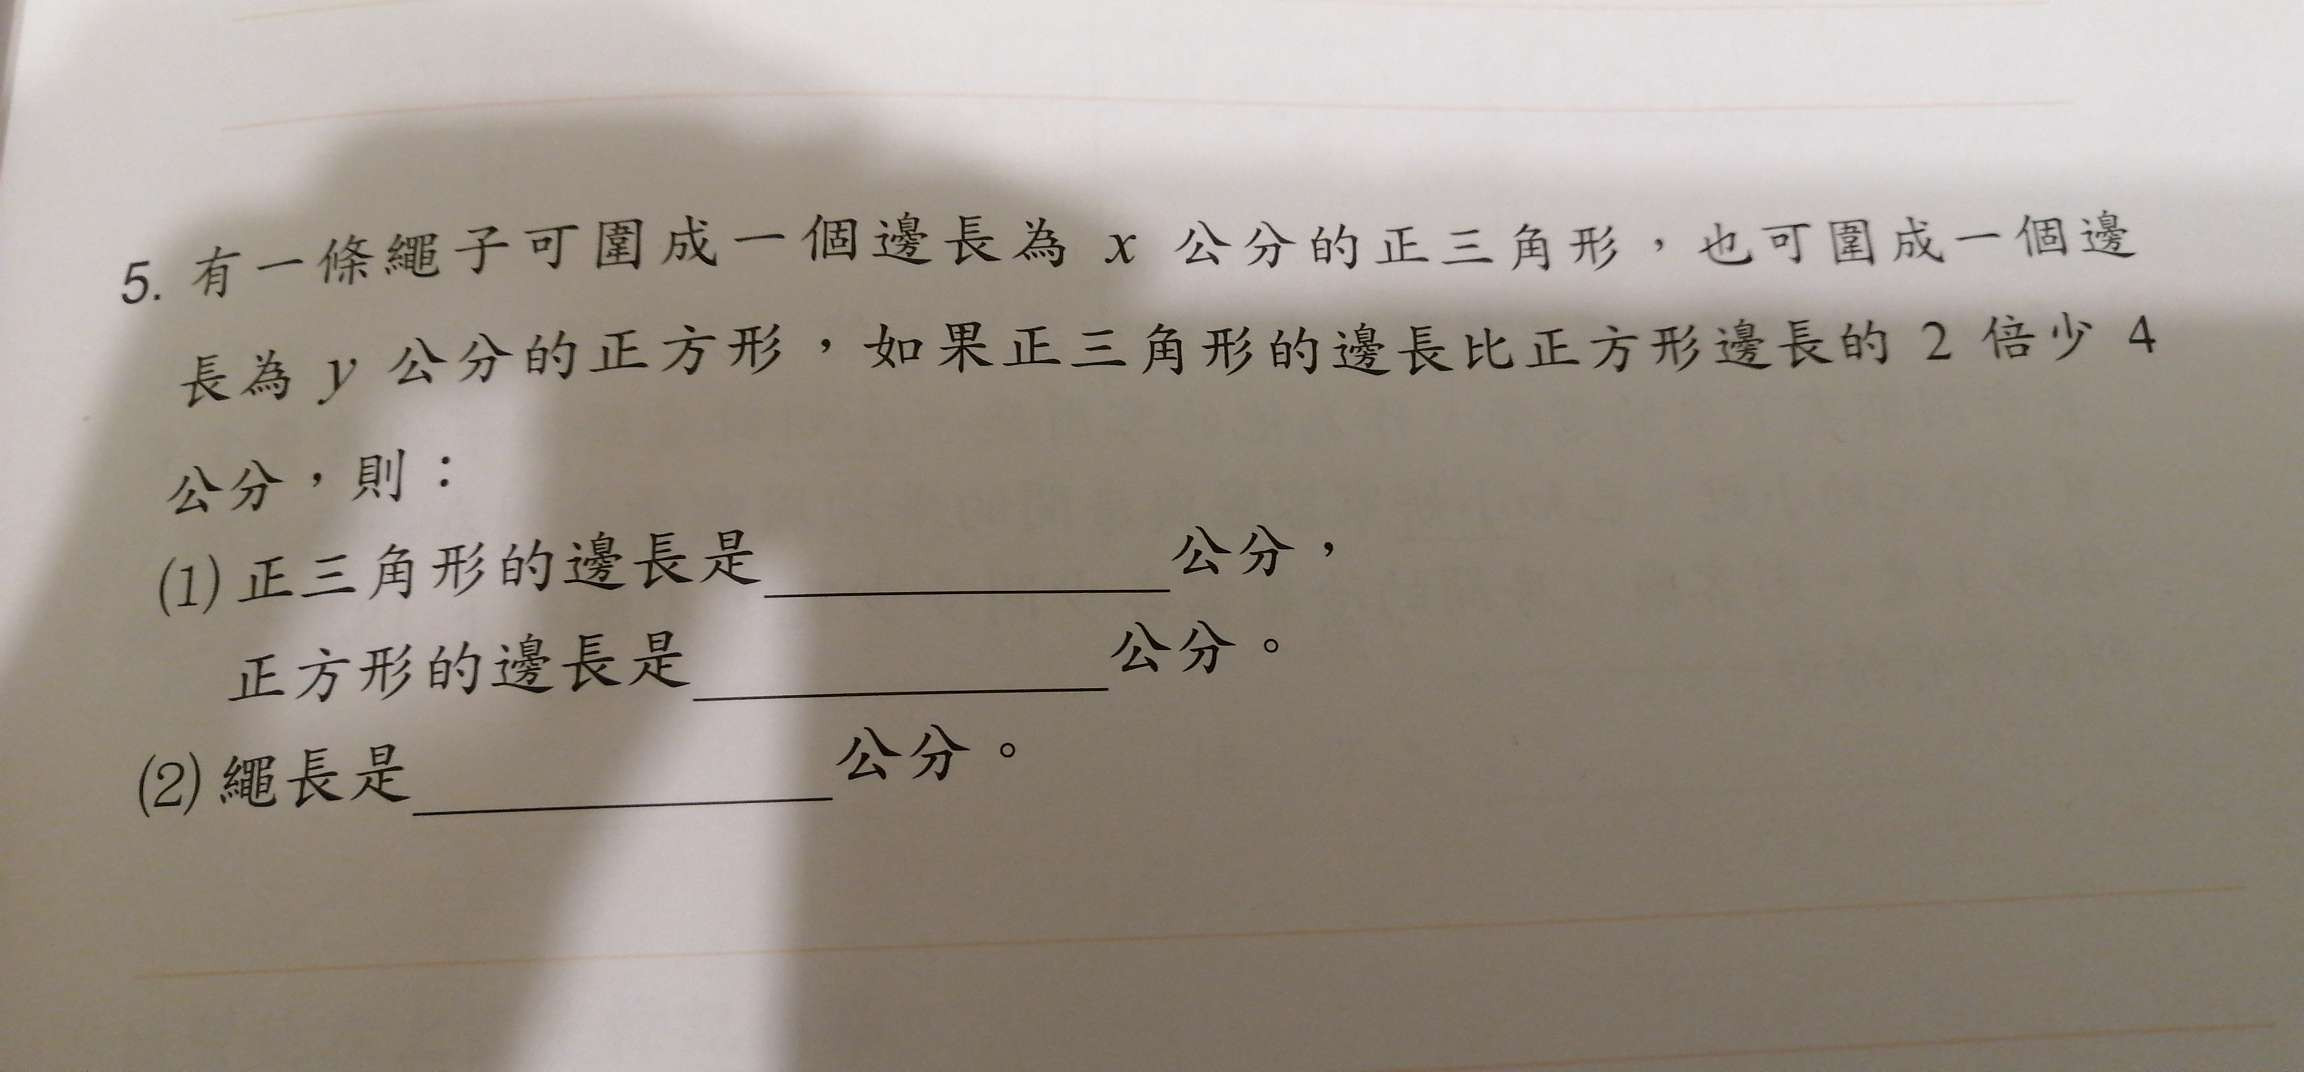 5. 有一條繩子可圍成一個邊長為 x 公分的正三角形，也可圍成一個邊
長為 y 公分的正方形，如果正三角形的邊長比正方形邊長的 2 倍少 4
公分，則：
(1) 正三角形的邊長是＿＿＿＿＿＿公分，
正方形的邊長是＿＿＿＿＿＿公分。
(2) 繩長是＿＿＿＿＿＿公分。